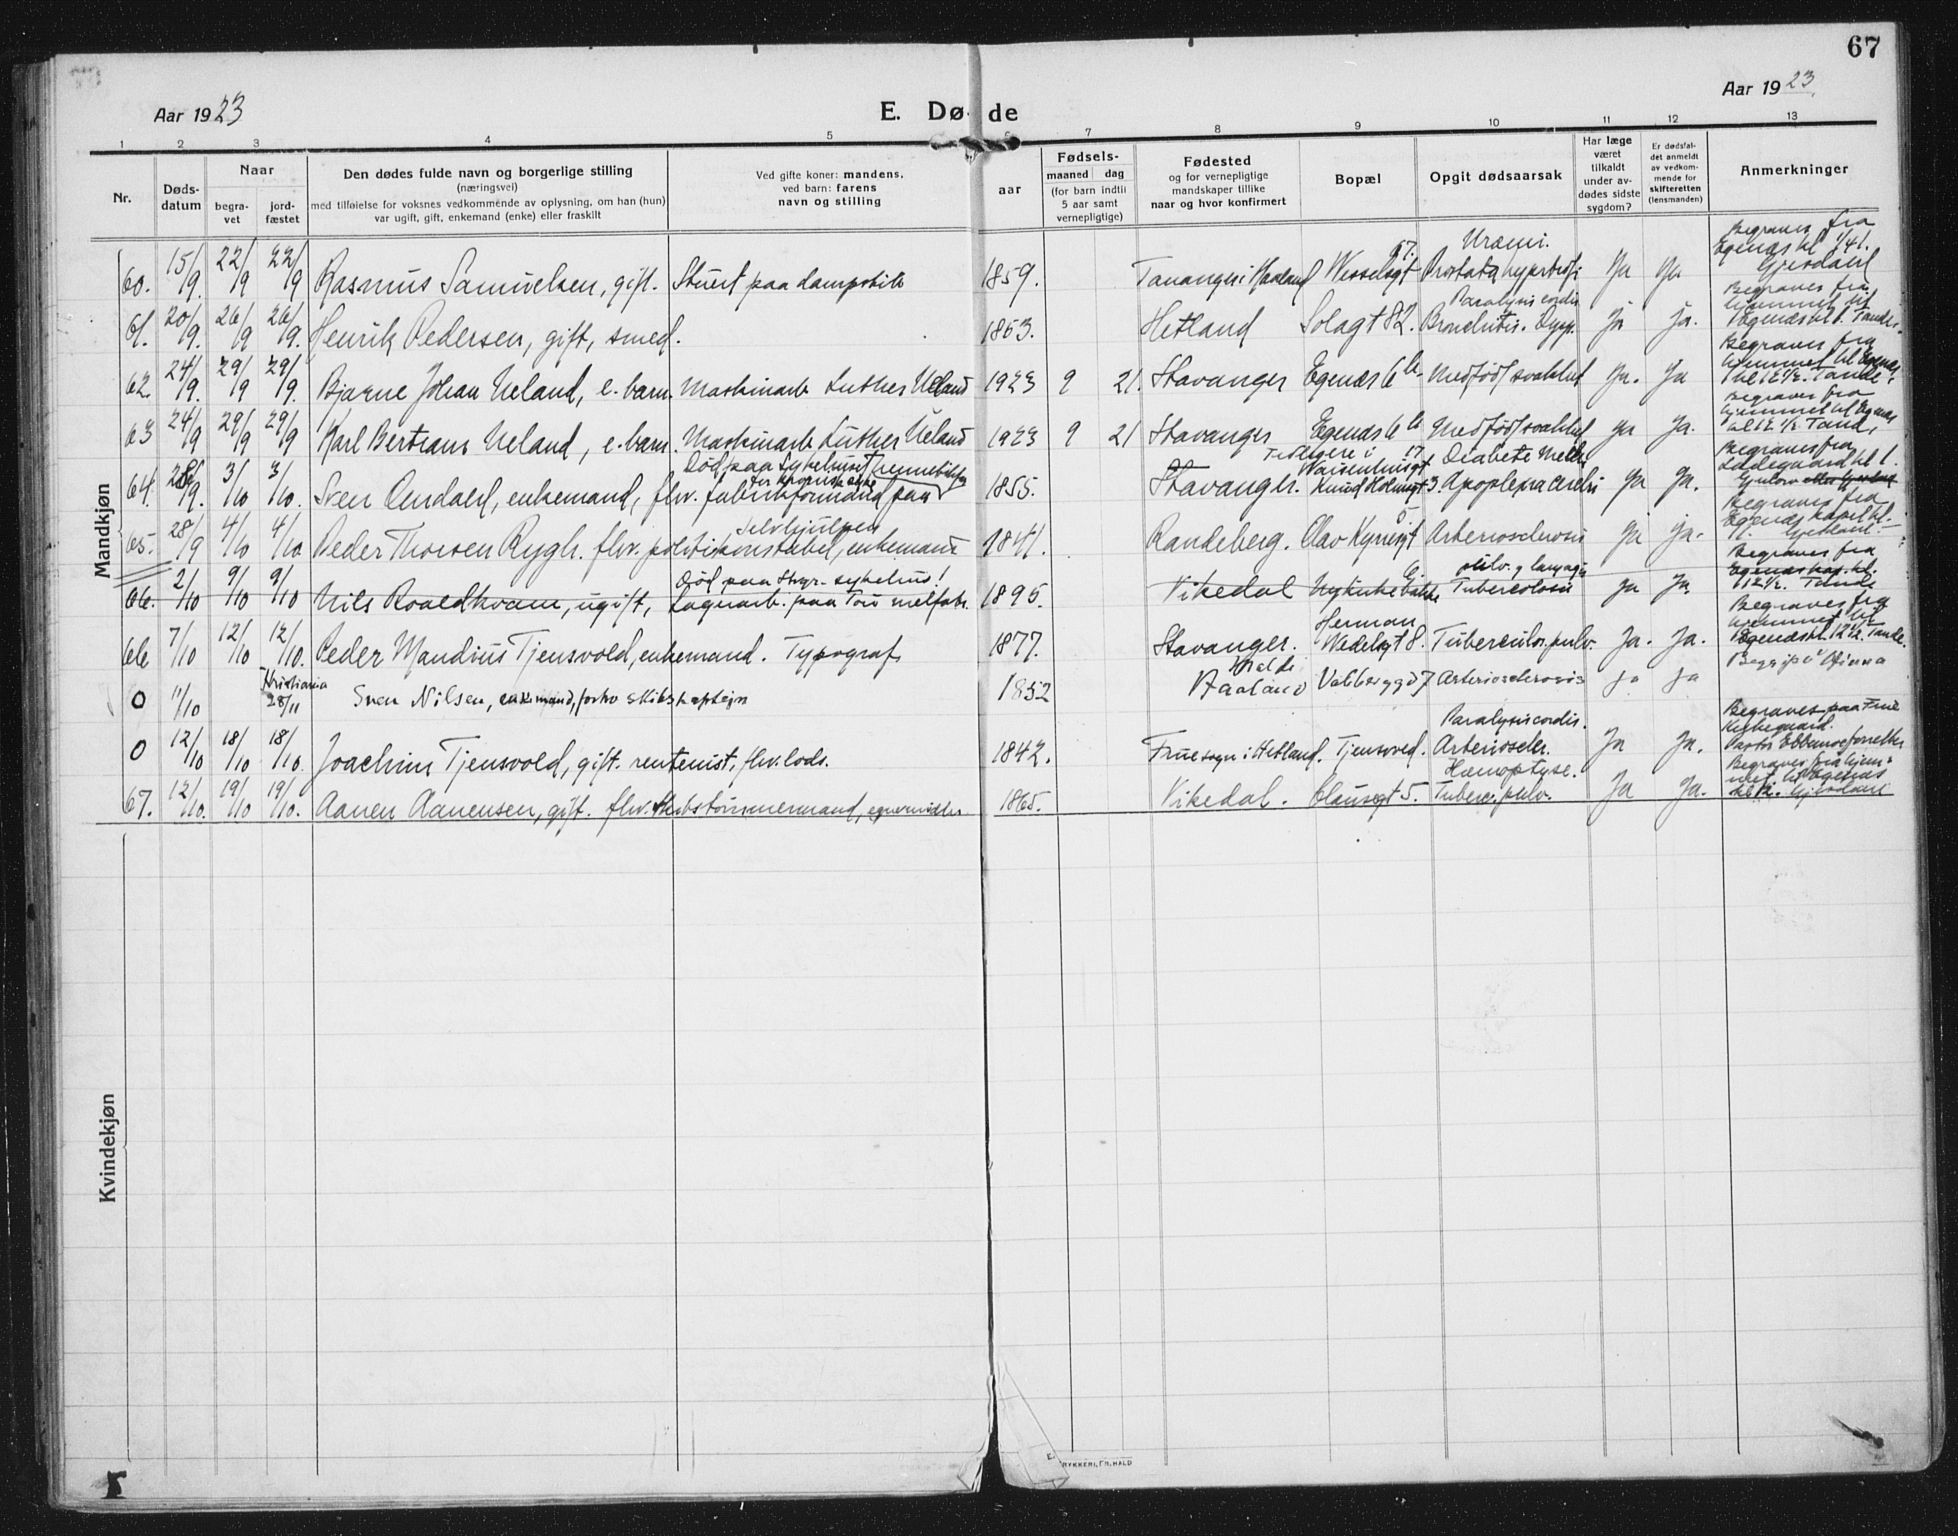 67
Aar 1923
E. Døde
Aar 1923.
1 2 3 4 5 7 8 9 10 11 12 13
Nr.
Døds-
datum
Naar
begra-
vet
jord-
fæstet
Den dødes fulde navn og borgerlige stilling
(næringsvei)
med tilføielse for voksnes vedkommende av oplysning, om han (hun)
var ugift, gift, enkemand (enke) eller fraskilt
Ved gifte koner: mandens,
ved barn: farens
navn og stilling
aar
Fødsels-
maaned dag
(for barn indtil
5 aar samt
vernepligtige)
Fødested
og for vernepligtige
mandskaper tillike
naar og hvor konfirmert
Bopæl
Opgit dødsaarsak
Har læge
været
tilkaldt
under av-
dødes sidste
sygdom?
Er dødsfal-
det anmeldt
av vedkom-
mende for
skifteretten
(lensmanden)
Anmerkninger
Mandkjøn
60. 15/9. 22/9 22/9 Rasmus Samuelsen, gift. Stuert paa dampskib 1859. Tananger i Haaland Wesselsgt 57. Uræmi. Prostata hypertrofi Ja Ja Begraves fra Egenæs kl. 1/41. Gjesdahl
61. 20/9. 26/9 26/9. Henrik Pedersen, gift, smed. 1853. Hetland Solagt 82. Paralysis cordis Bronchitis. ja ja. Begraves fra hjemmet til Egenæs kl. 1. Tande.
62. 24/9. 29/9 29/9. Bjarne Johan Ueland, e. barn. Maskinarb. Luther Ueland 1923 9 21. Stavanger Egenæs 6 b. Medfødt svakhet ja. ja Begraves fra hjemmet til Egenæs kl 12 1/2. Tande.
63 24/9 29/9 29/9 Karl Bertram Ueland, e. barn. Maskinarb. Luther Ueland 1923 9 21 Stavanger Egenæs 6 b Medfødt svakhet ja Ja. Begraves fra hjemmet til Egenæs kl 12 1/2 Tand.
64. 28/9. 3/10 3/10. Sven Omdal, enkemand, fhv. fabrikformand paa Død paa Sykehuset for kronisk syke 1855. Stavanger. Tidligere i Waisenhusgt 17 Knud Holmsgt 3. Diabete mell. Apoplexia cerebri ja Ja. Begraves fra Ladegaard kl 1.
65. 28/9 4/10 4/10 Peder Thorsen Rygh. fhv. politikonstabel, enkemand Selvhjulpen 1841. Randeberg. Olav Kyrresgt 5 Arteriosclerosis ja ja. Begraves fra Egenæs kapel kl. 1. Gjesdahl.
66. 2/10 9/10 9/10 Nils Roaldkvam, ugift, Lagerarb. paa Tou melfabr. Død paa Stvgr. sykehus! 1895. Vikedal Nykirkebakke 6. Tuberculosis pulm. og laryngis ja Ja. Begraves fra Egenæs kap. kl. 12 1/2. Tande
66 7/10 12/10 12/10. Peder Mandius Tjensvold, enkemand. Typograf 1877. Stavanger. Herman Wedelsgt 8. Tuberculos. pulm. Ja. Ja. Begraves fra hjemmet til Egenæs kl. 12 1/2. Tande.
0 11/10 Kristiania 28/11 Sven Nilsen, enkemand, forhv skibskaptein 1852 Haaland Valbergsgd 7 Arteriosclerosis ja ja
0 12/10 18/10 18/10. Joachim Tjensvold, gift. rentenist, fhv. lods. 1842. Frue sogn i Hetland. Tjensvold. Paralysis cordis. Arterioscler. Ja Ja. Begraves paa Frue Kirkegaard.
67. 12/10. 19/10 19/10. Aanen Aanensen, gift. fhv. skibstømmermand, 1865. Vikedal. Clausegt 5. Hæmoptyse. Tuberc. pulm. Ja Ja. Begraves fra hjemmet til Egenæs kl 12. Gjesdahl
Kvindekjøn
RYKKERI, FR. HALD